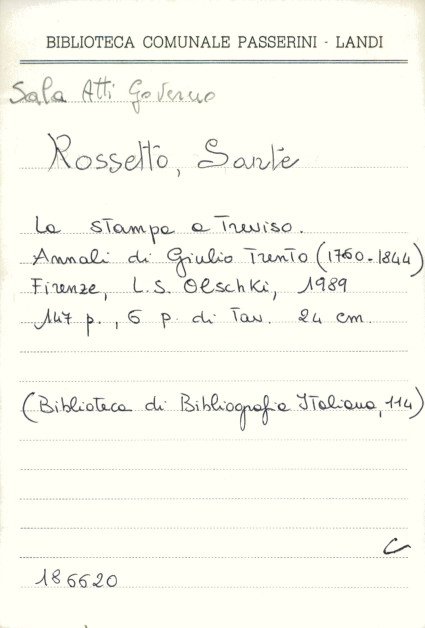 BIBLIOTECA COMUNALE PASSERINI - LANDI
Sala Atti Governo
Rossetto, Sante
La stampa a Treviso.
Annali di Giulio Trento (1760-1844)
Firenze, L.S. Olschki, 1989
147 p., 6 p. di Tav. 24 cm.
(Biblioteca di Bibliografia Italiana, 114)
C
186620